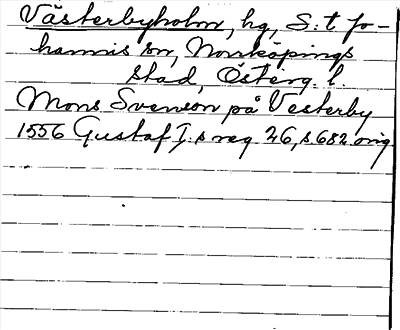 Västerbyholm, hg, S:t Jo-
hannis sn, Norrköpings
stad, Österg. l.
Mons Svenson på Vesterby
1556 Gustaf I:s reg. 26, s. 682 orig